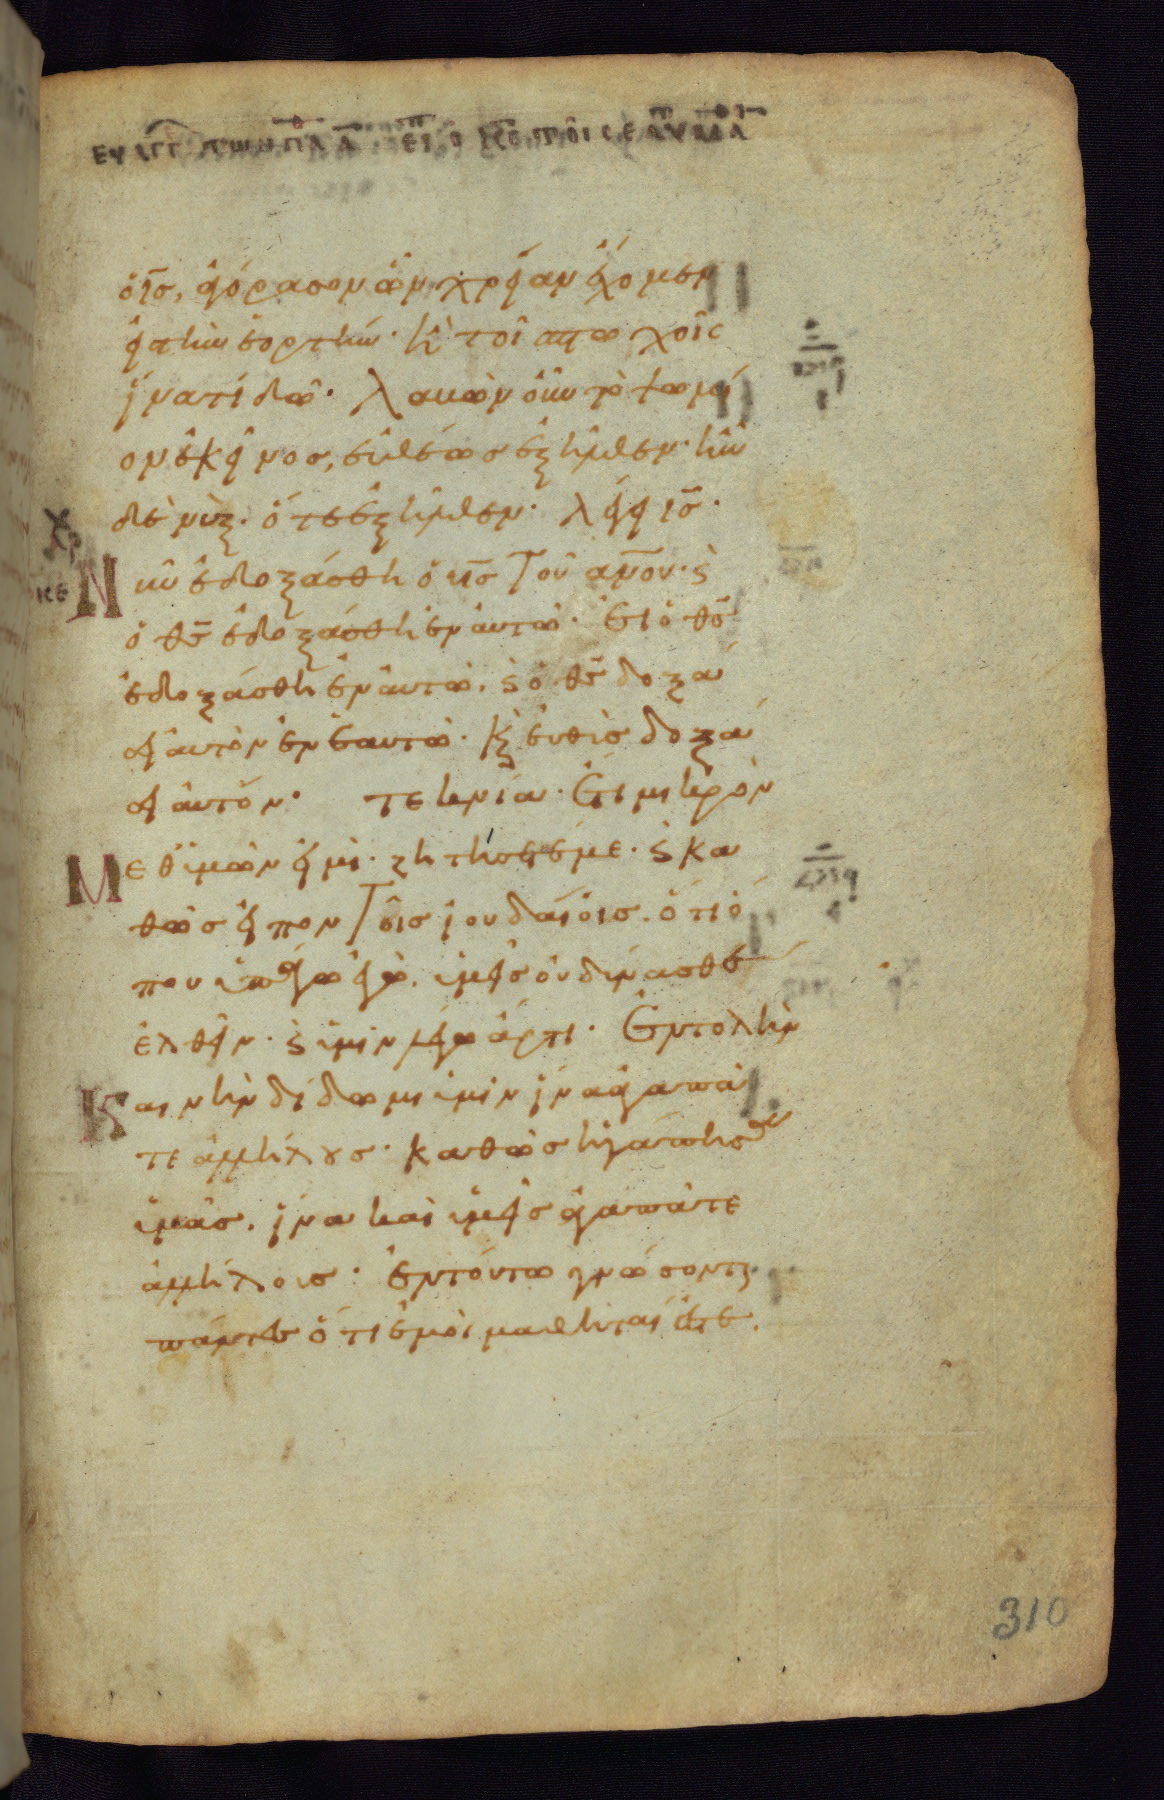 ὁ ις, ἀγόρασον ὧν χρείαν ἔχομεν
εἰς τὴν ἑορτήν· ἢ τοῖ πτωχοῖς
ἵνα τί δῶ· λαβὼν οὖν τὸ ψωμί
ον ἐκεῖνος, εὐθέως ἐξῆλθεν· ἦν
δὲ νὺξ· ὅτε ἐξῆλθεν· λέγει ις·
Νῦν ἐδοξάσθη ὁ υις του ανου· ϗ
ὁ θς ἐδοξάσθη ἐν αὐτῶ· Ει ὁ θς
ἐδοξάσθη ἐν αὐτῶ, ϗ ὁ θς δοξά
σει αὐτὸν ἐν ἑαυτῶ· ϗ εὐθὶς δοξά
σει αὐτόν· τεκνία· Ετι μικρὸν
Μεθ ἱμῶν εἰμὶ· ζητήσετέ με· ϗ κα
θὼς εἶπον τοῖς ἰουδαίοις· ὅτι ὅ
που ὑπάγω ἐγὼ, ἱμεῖς οὐ δύνασθε
ἐλθεῖν· ϗ ἱμῖν λέγω ἄρτι· Εντολὴν
Καινὴν δίδωμι ἱμῖν ἵνα ἀγαπᾶ
τε ἀλλήλους· καθὼς ἠγάπησα
ἱμᾶς, ἵνα καὶ ἱμεῖς ἀγαπᾶτε
ἀλλήλοις· ἐν τούτω γνώσοντι
πάντες ὅτι ἐμοὶ μαθηταί ἐστε.
310